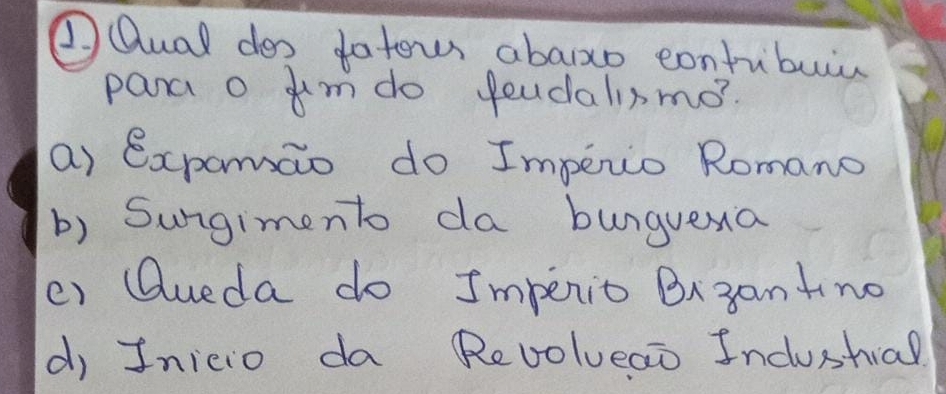 1. Qual dos fatores abaixo contribuiu
para o fim do feudalismo?
a) Expansão do Império Romano
b) Surgimento da burguesia
c) Queda do Império Bizantino
d) Inicio da Revolução Industrial